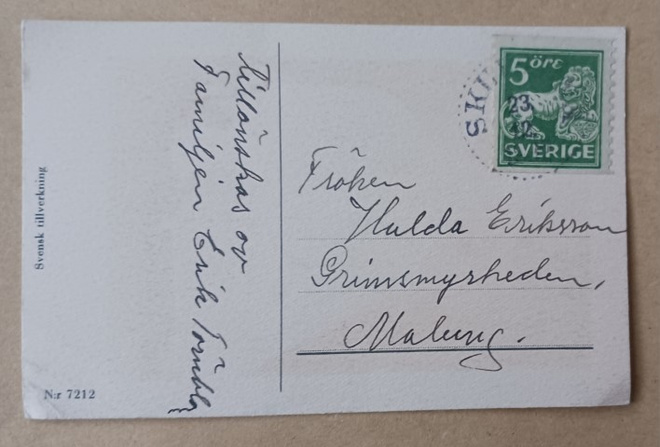 Svensk tillverkning
N:r 7212
Tillönskas av
Familjen Erik
5 ÖRE
SVERIGE
23
12
Fröken
Hulda Eriksson
Grimsmyrheden,
Malung.